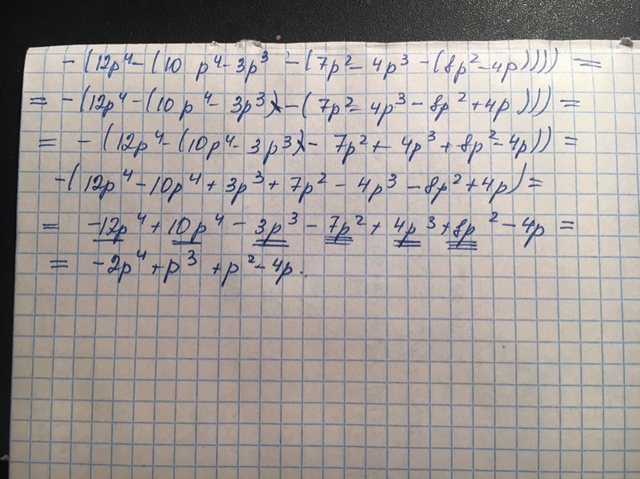 -(12p⁴-(10 p⁴-3p³-(7p²-4p³-(8p²-4p))))=
= -(12p⁴-(10p⁴-3p³)-(7p²-4p³-8p²+4p)))=
= -(12p⁴-(10p⁴-3p³)-7p²+4p³+8p²-4p))=
-(12p⁴-10p⁴+3p³+7p²-4p³-8p²+4p)=
= -12p⁴+10p⁴-3p³-7p²+4p³+8p²-4p=
= -2p⁴+p³+p²-4p.